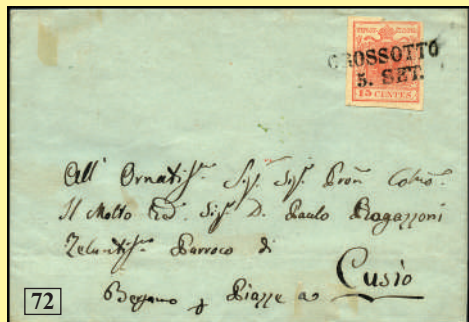 GROSSOTTO
5. SET.
15 CENTES
All' Ornatis. Sig. Sig. Pron Colmo.
Il Molto Rd. Sig. D. Paulo Ragazzoni
Zelantis. Parroco di
Bergamo p Piazze a Cusio
72